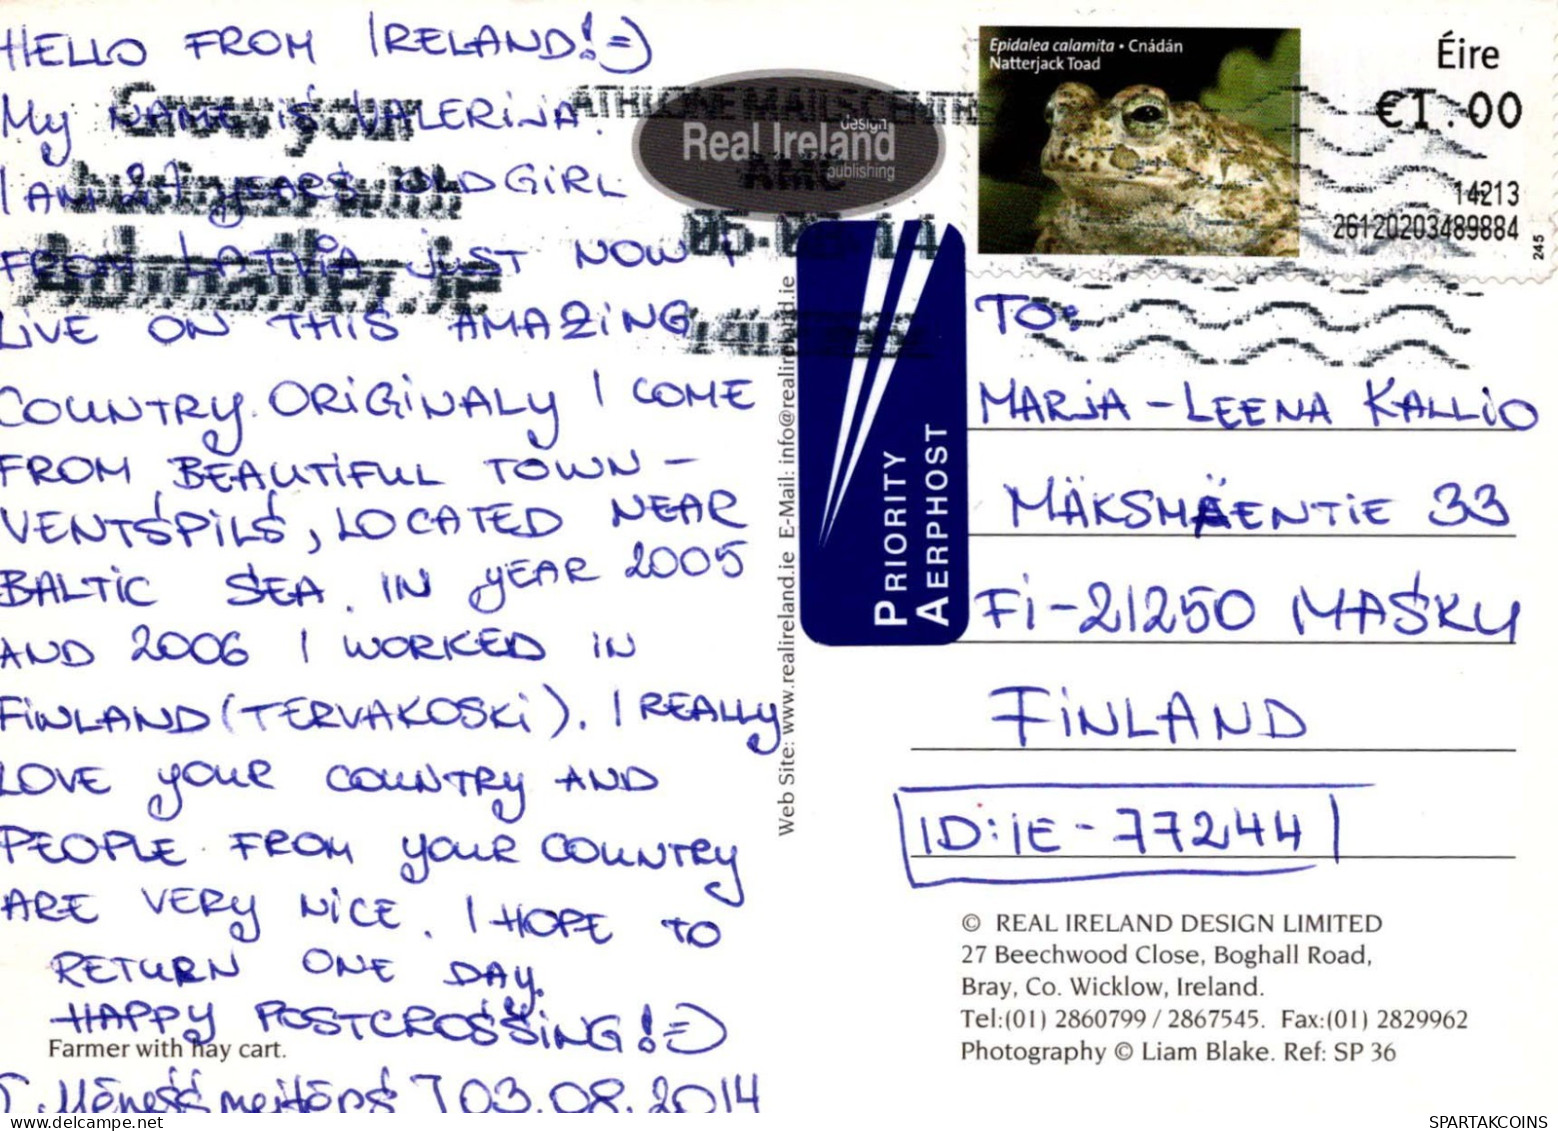 HELLO FROM IRELAND! =)
MY NAME IS VALERIJA.
I AM 27 YEARS OLD GIRL
FROM LATVIA JUST NOW I
LIVE ON THIS AMAZING
COUNTRY. ORIGINALY I COME
FROM BEAUTIFUL TOWN -
VENTSPILS, LOCATED NEAR
BALTIC SEA. IN YEAR 2005
AND 2006 I WORKED IN
FINLAND (TERVAKOSKI). I REALLY
LOVE YOUR COUNTRY AND
PEOPLE FROM YOUR COUNTRY
ARE VERY NICE. I HOPE TO
RETURN ONE DAY.
HAPPY POSTCROSSING! =)
03.08.2014
Farmer with hay cart.
Grow your
business with
Admailer.ie
ATHLONE MAILS CENTRE
AMC
Real Ireland
design
publishing
Web Site: www.realireland.ie E-Mail: info@realireland.ie
PRIORITY
AERPHOST
Epidalea calamita • Cnádán
Natterjack Toad
Éire
€1.00
14213
26120203489884
245
TO:
MARJA-LEENA KALLIO
MÄKSMÄENTIE 33
FI-21250 MASKU
FINLAND
ID: IE-77244
© REAL IRELAND DESIGN LIMITED
27 Beechwood Close, Boghall Road,
Bray, Co. Wicklow, Ireland.
Tel:(01) 2860799 / 2867545. Fax:(01) 2829962
Photography © Liam Blake. Ref: SP 36
SPARTAKCOINS